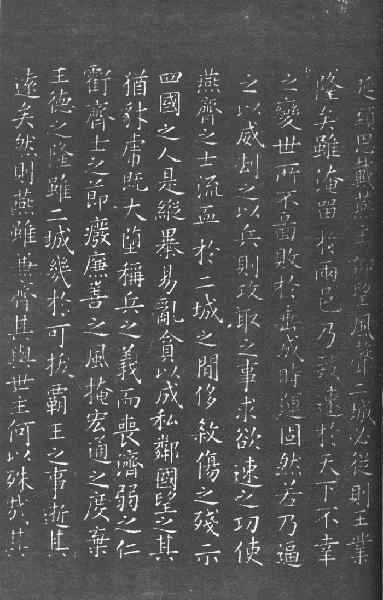 延頸思戴燕主仰望風聲二城必從則王業
隆矣雖淹留於兩邑乃致速於天下不幸
之變世所不啚敗於垂成時運固然若乃逼
之以威劫之以兵則攻取之事求欲速之功使
燕齊之士流血於二城之閒侈敓傷之殘示
四國之人是縱暴易亂貪以成私鄰國望之其
猶豺虎既大墮稱兵之義而喪濟弱之仁
虧齊士之節廢廉善之風掩宏通之度棄
王德之隆雖二城幾於可拔霸王之事逝其
遠矣然則燕雖兼齊其與世主何以殊哉其